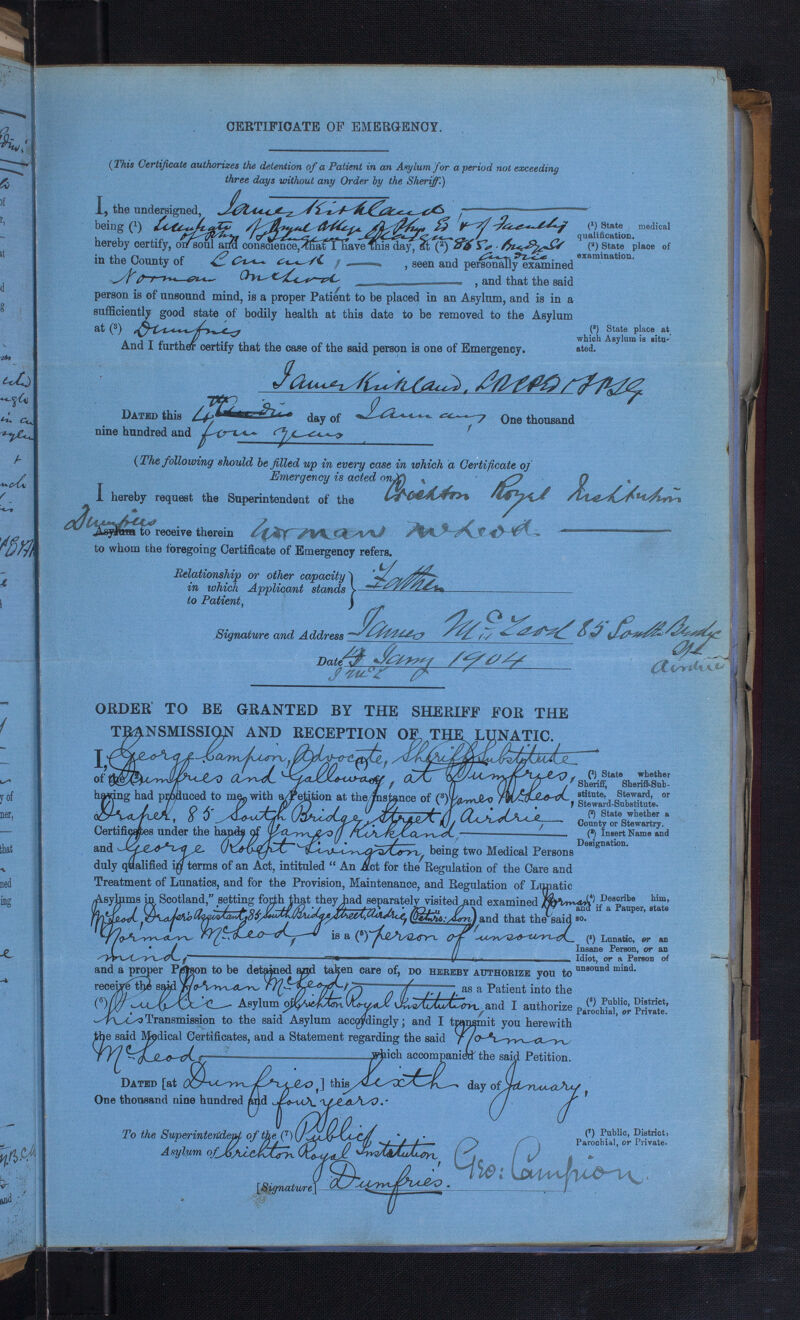 CERTIFICATE OF EMERGENCY.
(This Certificate authorizes the detention of a Patient in an Asylum for a period not exceeding
three days without any Order by the Sheriff.)
I, the undersigned, James Kirkland
being (¹) Licentiate of Royal College of Phys. Ed & of Faculty
of Phys & Surgeons Glasgow
hereby certify, on soul and conscience, that I have this day, at (²) 86 So. Bridge St
Airdrie
in the County of Lanark, seen and personally examined
Norman McLeod, and that the said
person is of unsound mind, is a proper Patient to be placed in an Asylum, and is in a
sufficiently good state of bodily health at this date to be removed to the Asylum
at (³) Dumfries
And I further certify that the case of the said person is one of Emergency.
(¹) State medical
qualification.
(²) State place of
examination.
(³) State place at
which Asylum is situ-
ated.
James Kirkland, LRCPED LFPSG
DATED this 4th day of January One thousand
nine hundred and four years
(The following should be filled up in every case in which a Certificate of
Emergency is acted on.)
I hereby request the Superintendent of the Crichton Royal Institution
Dumfries
Asylum to receive therein Norman McLeod
to whom the foregoing Certificate of Emergency refers.
Relationship or other capacity
in which Applicant stands
to Patient,
Father
Signature and Address James McLeod 85 South Bridge
St
Airdrie
Date 4 Jany 1904
J McL
ORDER TO BE GRANTED BY THE SHERIFF FOR THE
TRANSMISSION AND RECEPTION OF THE LUNATIC.
I, George Campion, Advocate, Sheriff Substitute
of Dumfries and Galloway, at Dumfries,
having had produced to me, with a Petition at the Instance of (³) James McLeod,
Draper, 85 South Bridge Street, Airdrie,
Certificates under the hands of James Kirkland,
and George Robert Livingston, being two Medical Persons
duly qualified in terms of an Act, intituled “An Act for the Regulation of the Care and
Treatment of Lunatics, and for the Provision, Maintenance, and Regulation of Lunatic
Asylums in Scotland,” setting forth that they had separately visited and examined Norman
McLeod, Draper's Assistant, 85 South Bridge Street, Airdrie, (Petnr's: Son) and that the said
Norman McLeod, is a (⁵) person of unsound
mind,
and a proper Person to be detained and taken care of, DO HEREBY AUTHORIZE you to
receive the said Norman McLeod, as a Patient into the
(⁶) Public Asylum of Crichton Royal Institution, and I authorize
his Transmission to the said Asylum accordingly; and I transmit you herewith
the said Medical Certificates, and a Statement regarding the said Norman
McLeod, which accompanied the said Petition.
(¹) State whether
Sheriff, Sheriff-Sub-
stitute, Steward, or
Steward-Substitute.
(²) State whether a
County or Stewartry.
(³) Insert Name and
Designation.
(⁴) Describe him,
and if a Pauper, state
so.
(⁵) Lunatic, or an
Insane Person, or an
Idiot, or a Person of
unsound mind.
(⁶) Public, District,
Parochial, or Private.
DATED [at Dumfries,] this Sixth day of January,
One thousand nine hundred and four years.
To the Superintendent of the (⁷) Public
Asylum of Crichton Royal Institution,
Dumfries.
(⁷) Public, District,
Parochial, or Private.
[Signature] Geo: Campion